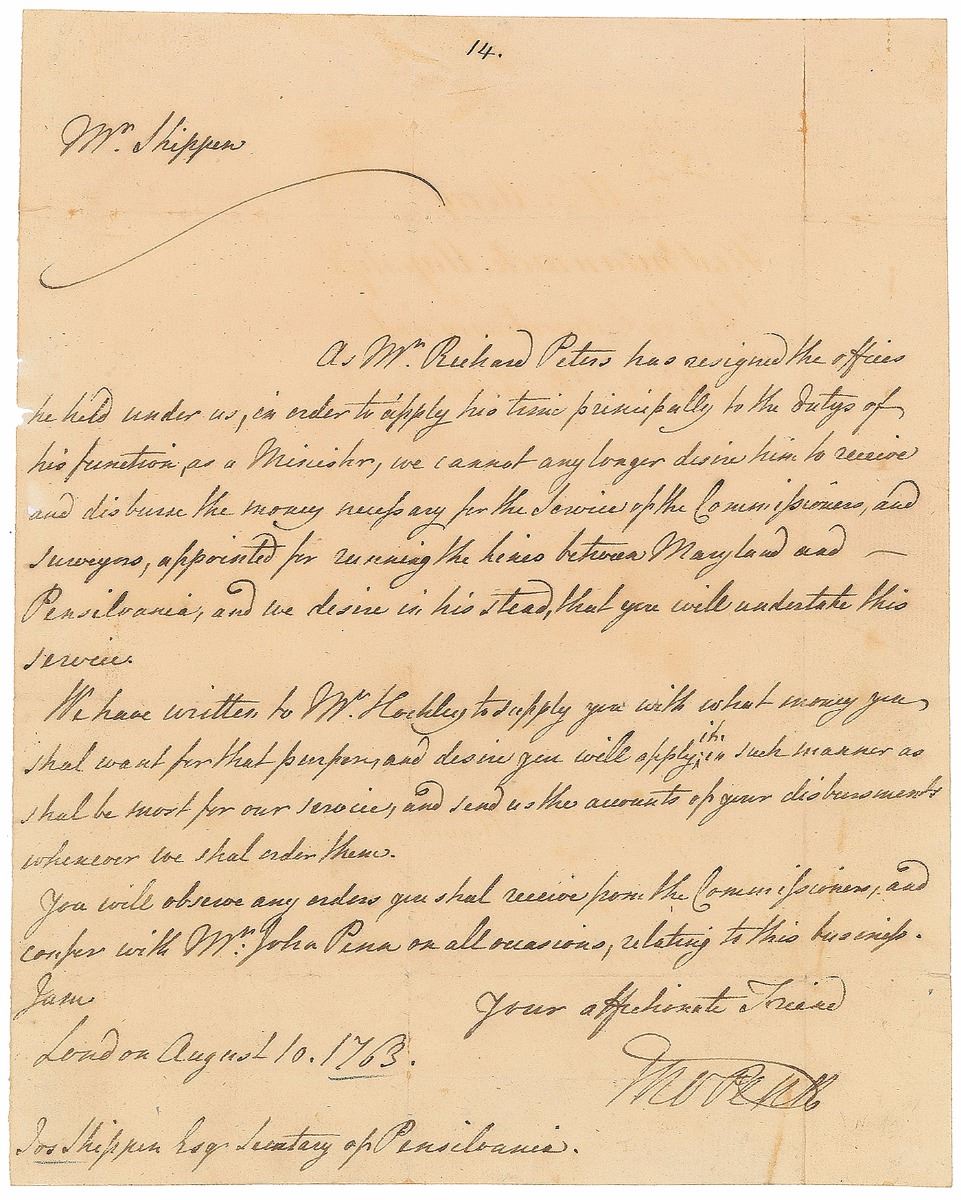 14.
Mr. Shippen
As Mr. Richard Peters has resigned the offices
he held under us, in order to apply his time principally to the dutys of
his function, as a Minister, we cannot any longer desire him to receive
and disburse the money necessary for the Service of the Commissioners, and
surveyors, appointed for running the lines between Maryland and —
Pensilvania, and we desire in his stead, that you will undertake this
service.
We have written to Mr. Hockley to supply you with what money you
shal want for that purpose, and desire you will apply it in such manner as
shal be most for our service, and send us the accounts of your disbursments
whenever we shal order them.
You will observe any orders you shal receive from the Commissioners, and
confer with Mr. John Penn on all occasions, relating to this business.
I am
Your affectionate Friend
London August 10. 1763.
Tho Penn
Jos Shippen Esqr Secretary of Pensilvania.